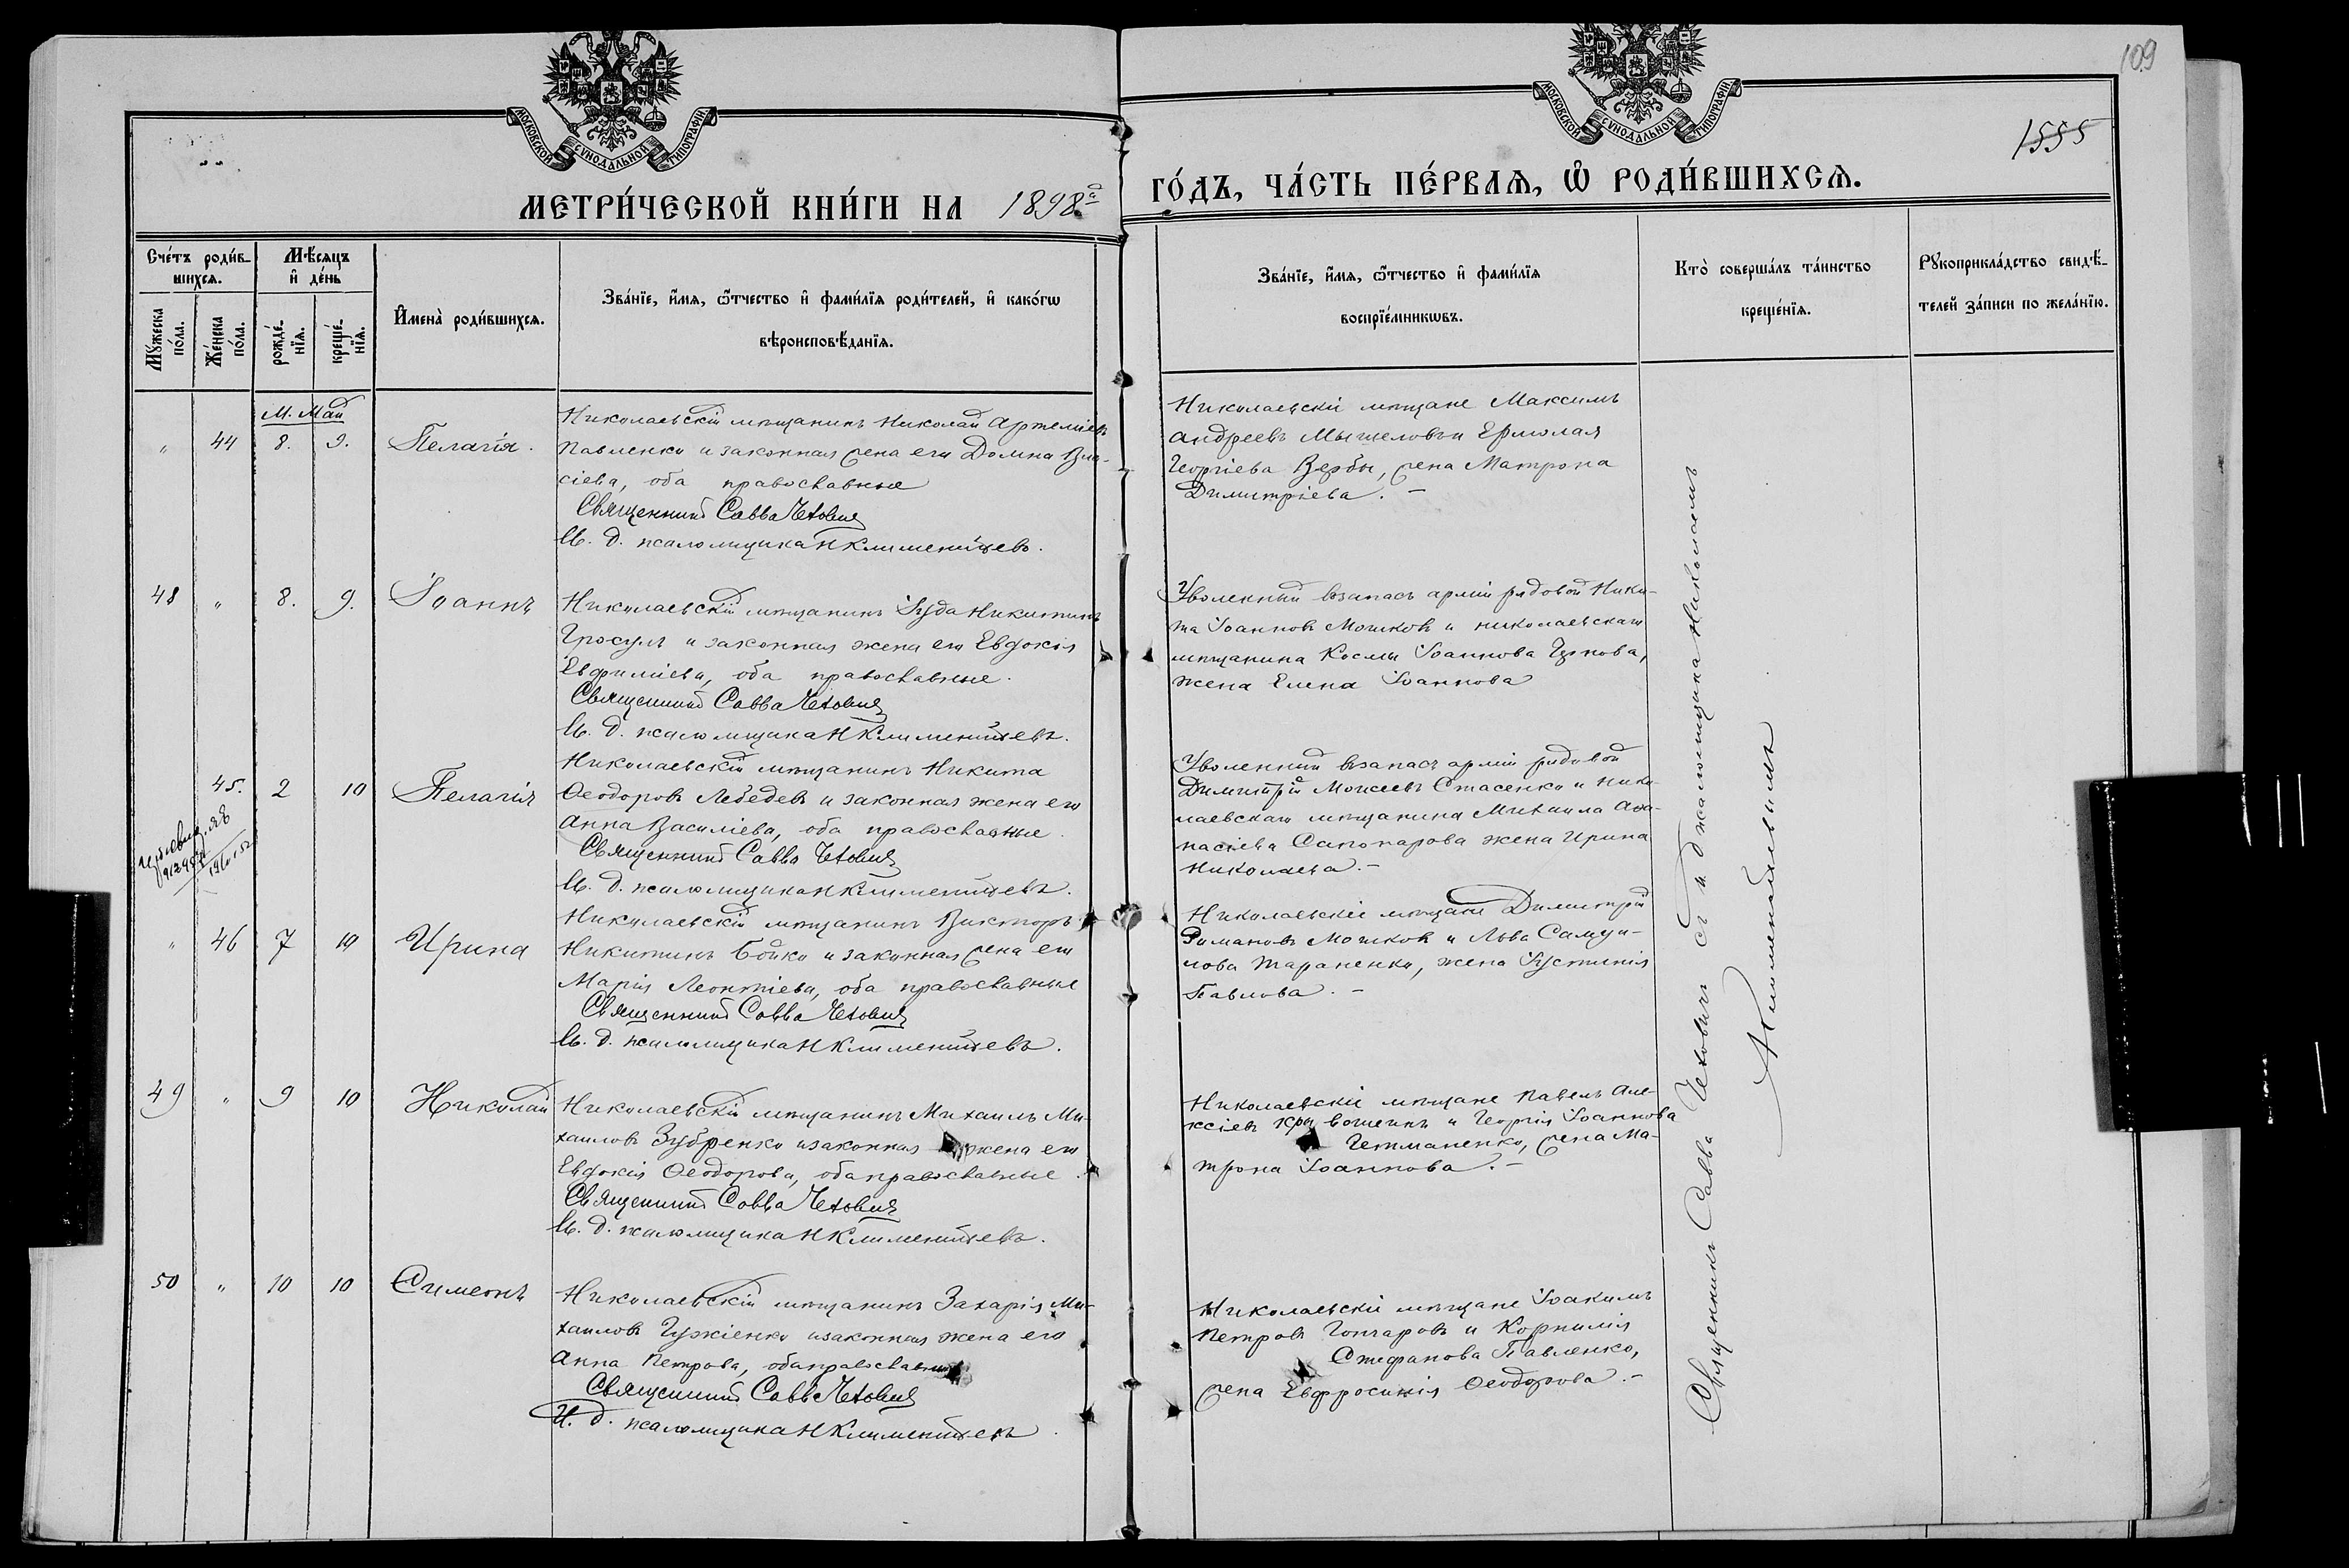 109
1555
МОСКОВСКОЙ СѴНОДАЛЬНОЙ ТИПОГРАФІИ.
МОСКОВСКОЙ СѴНОДАЛЬНОЙ ТИПОГРАФІИ.
МЕТРИ́ЧЕСКОЙ КНИ́ГИ НА 1898 ГО́ДЪ, ЧА́СТЬ ПЕ́РВАЯ, Ѡ РОДИ́ВШИХСЯ.
Сче́тъ роди́в-
шихся.
Мꙋ́жеска
по́ла.
Же́нска
по́ла.
Мѣ́сяцъ
и҆ де́нь
рожде́-
нїѧ.
креще́-
нїѧ.
И҆мена̀ роди́вшихся.
Зва́нїе, и҆́мѧ, ѻ҆́тчество и҆ фами́лїѧ роди́телей, и҆ како́гѡ
вѣроисповѣ́данїѧ.
Зва́нїе, и҆́мѧ, ѻ҆́тчество и҆ фами́лїѧ
воспрїе́мникѡвъ.
Кто̀ соверша́лъ та́инство
креще́нїѧ.
Рꙋкоприкла́дство свидѣ́-
телей за́писи по жела́нїю.
М. Май
" 44 8. 9. Пелагія.
Николаевскій мѣщанинъ Николай Артеміевъ
Павленко и законная жена его Домна Вла-
сіева, оба православные
Священникъ Савва Чеховичъ
И. д. псаломщика Н Климентьевъ.
Николаевскіе мѣщане Максимъ
Андреевъ и Ермолая
Георгіева Вербы, жена Матрона
Димитріева. –
48 " 8. 9. Іоаннъ
Николаевскій мѣщанинъ Іуда Никитинъ
Гросулъ и законная жена его Евдокія
Евфиміева, оба православные.
Священникъ Савва Чеховичъ
И. д. псаломщика Н Климентьевъ.
Уволенный въ запасъ арміи рядовой Ники-
та Іоанновъ Мошковъ и николаевскаго
мѣщанина Космы Іоаннова
жена Елена Іоаннова
45. 2 10 Пелагія
Николаевскій мѣщанинъ Никита
Ѳеодоровъ Лебедевъ и законная жена его
Анна Василіева, оба православные.
Священникъ Савва Чеховичъ
И. д. псаломщика Н Климентьевъ.
Уволенный въ запасъ арміи рядовой
Димитрій Моисеевъ Стасенко и нико-
лаевскаго мѣщанина Михаила Аѳа-
насіева Сапонарова жена Ирина
Николаева. –
" 46 7 10 Ирина
Николаевскій мѣщанинъ Викторъ
Никитинъ Бойко и законная жена его
Марія Леонтіева, оба православные
Священникъ Савва Чеховичъ
И. д. псаломщика Н Климентьевъ.
Николаевскіе мѣщане Димитрій
Романовъ Мошковъ и Льва Самуи-
лова Тараненко, жена Іустинія
Павлова. –
49 " 9 10 Николай
Николаевскій мѣщанинъ Михаилъ Ми-
хаиловъ Зубренко и законная жена его
Евдокія Ѳеодорова, оба православные.
Священникъ Савва Чеховичъ
И. д. псаломщика Н Климентьевъ.
Николаевскіе мѣщане Павелъ Але-
ксіевъ и Георгія Іоаннова
Гетманенко, жена Ма-
трона Іоаннова. –
50 " 10 10 Симеонъ
Николаевскій мѣщанинъ Захарія Ми-
хаиловъ Гужіенко и законная жена его
Анна Петрова, оба православные
Священникъ Савва Чеховичъ
И. д. псаломщика Н Климентьевъ.
Николаевскіе мѣщане Іоакимъ
Петровъ Гончаровъ и Корнилія
Стефанова Павленко,
жена Евфросинія Ѳеодорова. –
Священникъ Савва Чеховичъ съ и. д. псаломщика Николаемъ
Климентьевымъ